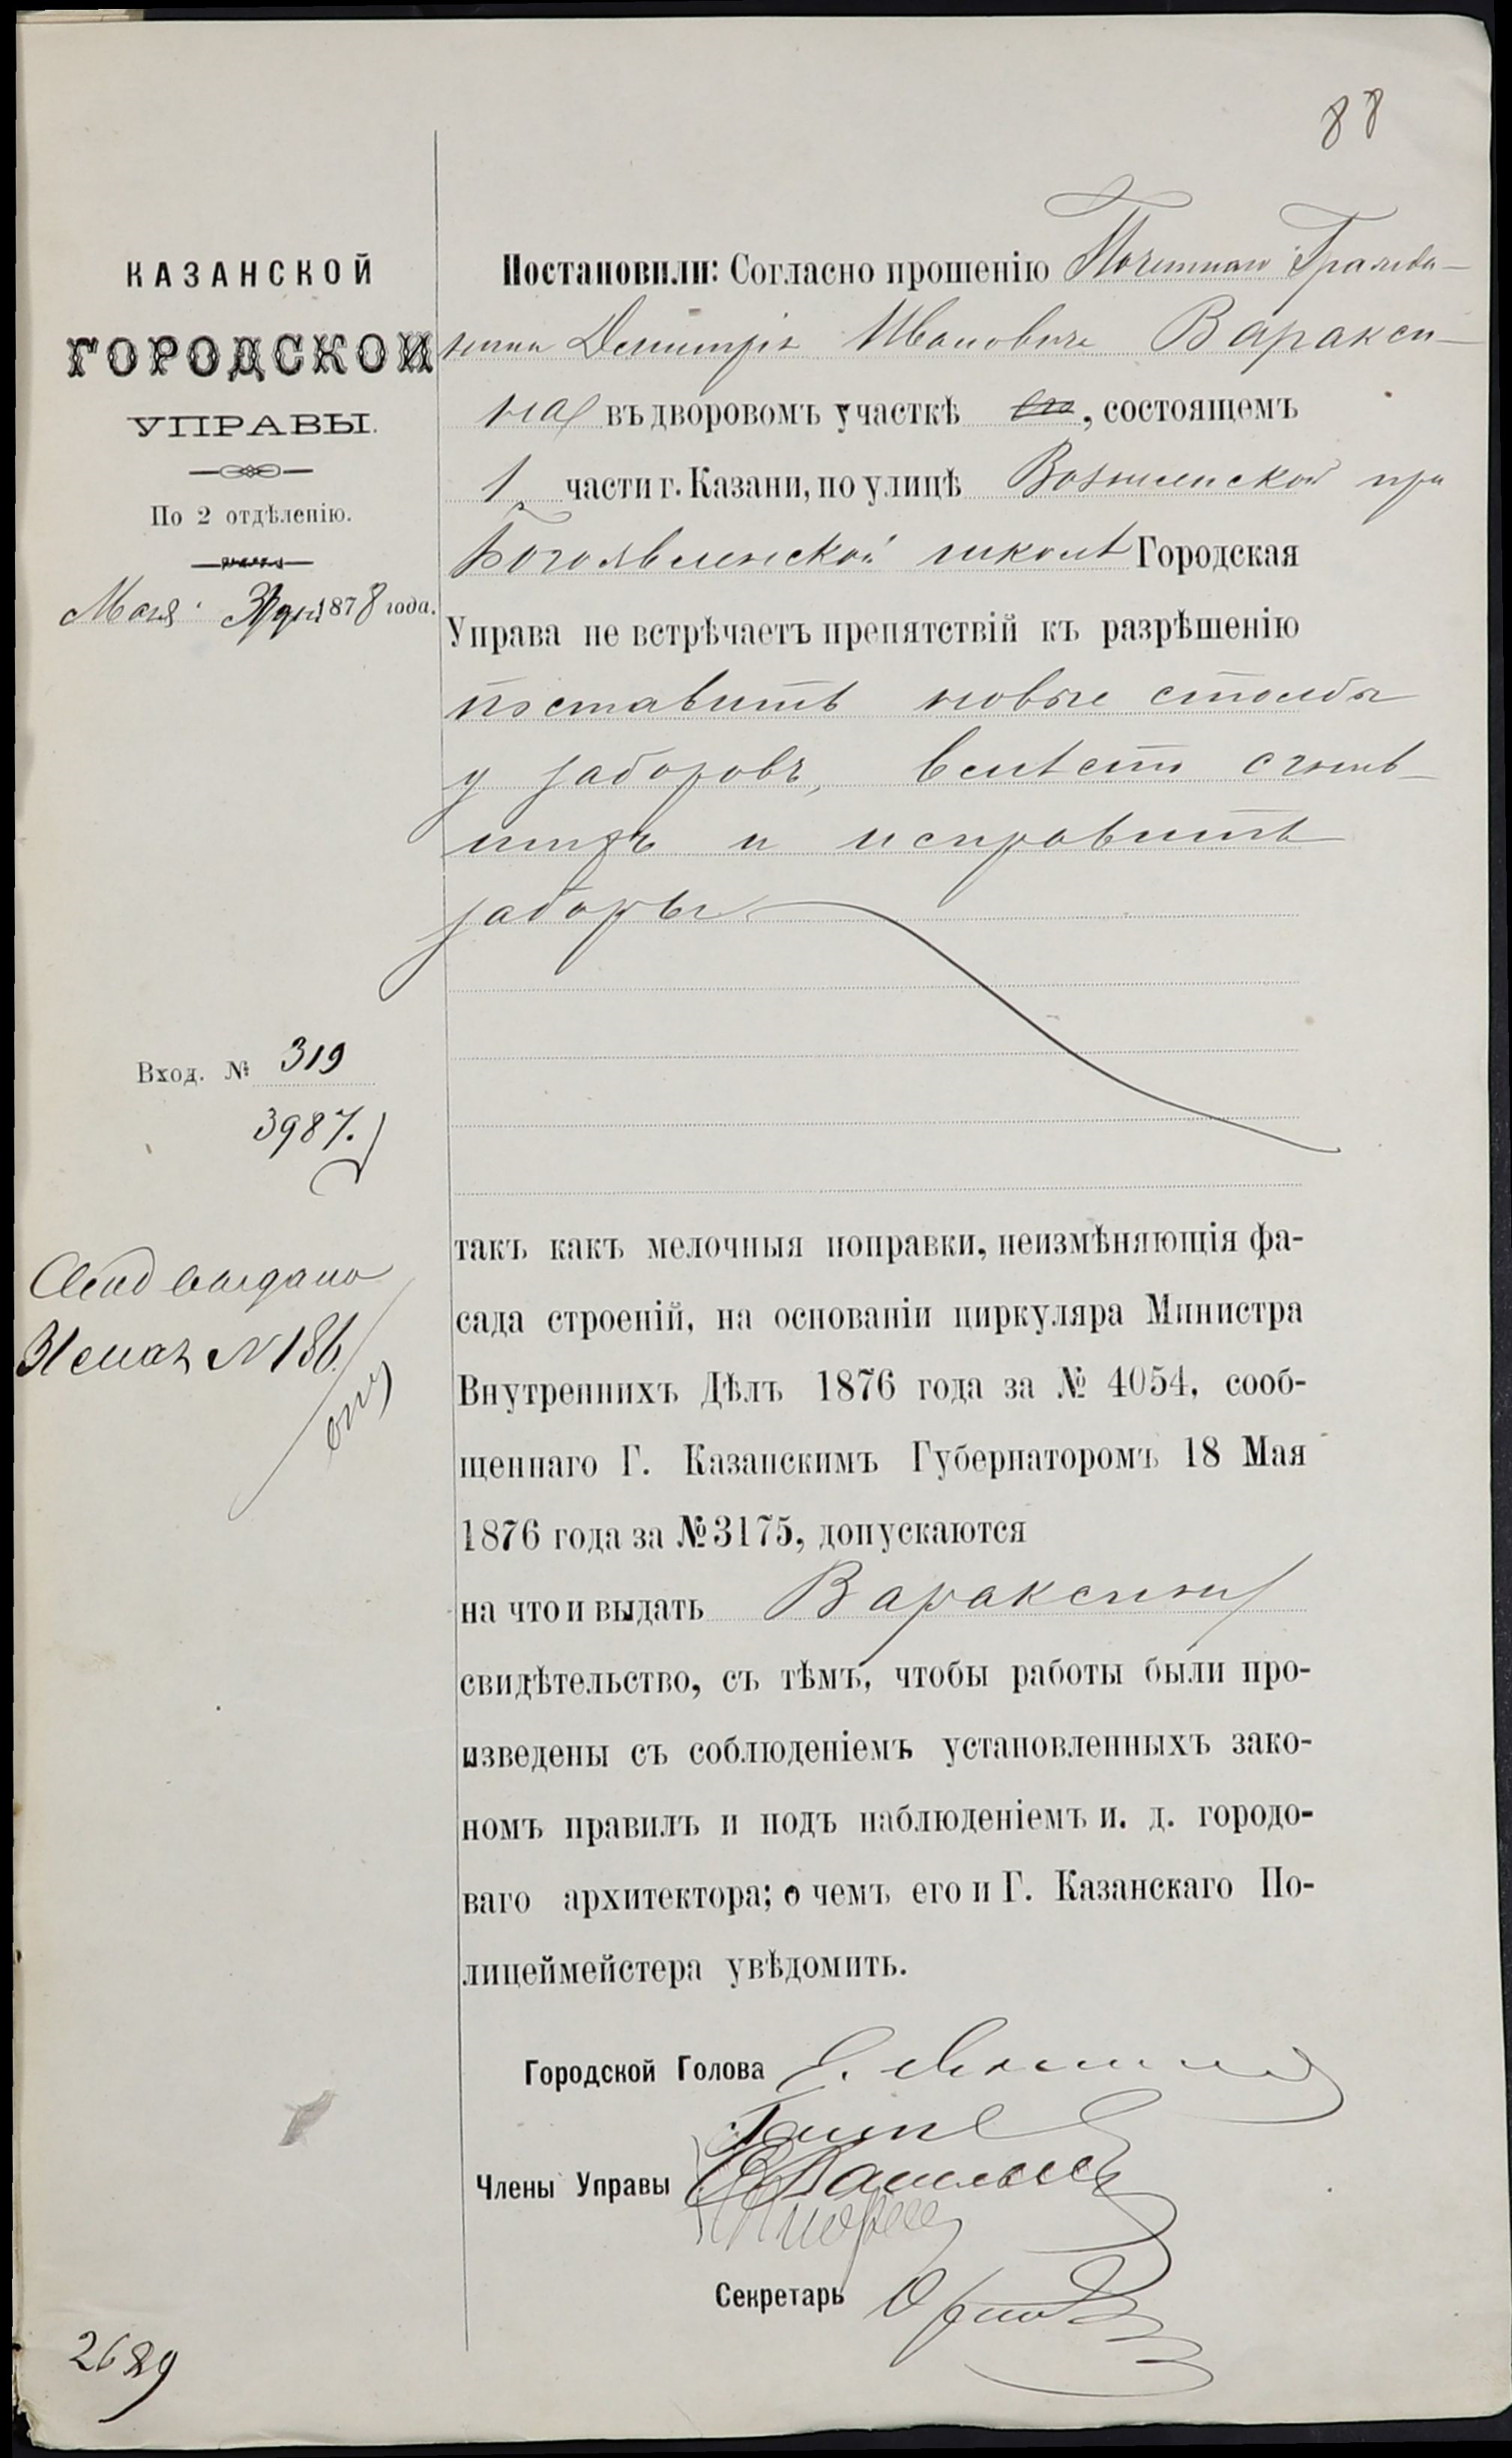 88
КАЗАНСКОЙ
ГОРОДСКОЙ
УПРАВЫ.
По 2 отдѣленію.
Мая 31 дня 1878 года.
Постановили: Согласно прошенію Почетнаго Гражда-
нина Димитрія Ивановича Варакси-
на въ дворовомъ участкѣ его, состоящемъ
1 части г. Казани, по улицѣ Вознесенской при
Богоявленской школѣ Городская
Управа не встрѣчаетъ препятствій къ разрѣшенію
поставить новые столбы
у заборовъ, вмѣсто сгнив-
шихъ и исправить
заборы
Вход. № 319
3987.
Свид выдано
31 мая № 186.
такъ какъ мелочныя поправки, неизмѣняющія фа-
сада строеній, на основаніи циркуляра Министра
Внутреннихъ Дѣлъ 1876 года за № 4054, сооб-
щеннаго Г. Казанскимъ Губернаторомъ 18 Мая
1876 года за № 3175, допускаются
на что и выдать Вараксину
свидѣтельство, съ тѣмъ, чтобы работы были про-
изведены съ соблюденіемъ установленныхъ зако-
номъ правилъ и подъ наблюденіемъ и. д. городо-
ваго архитектора; о чемъ его и Г. Казанскаго По-
лицеймейстера увѣдомить.
Городской Голова
Члены Управы
Секретарь
2689